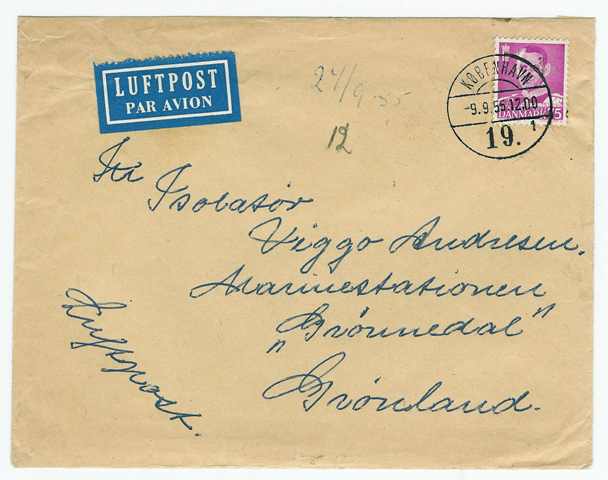 LUFTPOST
PAR AVION
24/9-55
12
KØBENHAVN
-9.9.55.12.00
19. 1
DANMARK 75
Hr
Isolatør
Viggo Andresen.
Marinestationen
„Grønnedal"
Grønland.
Luftpost.